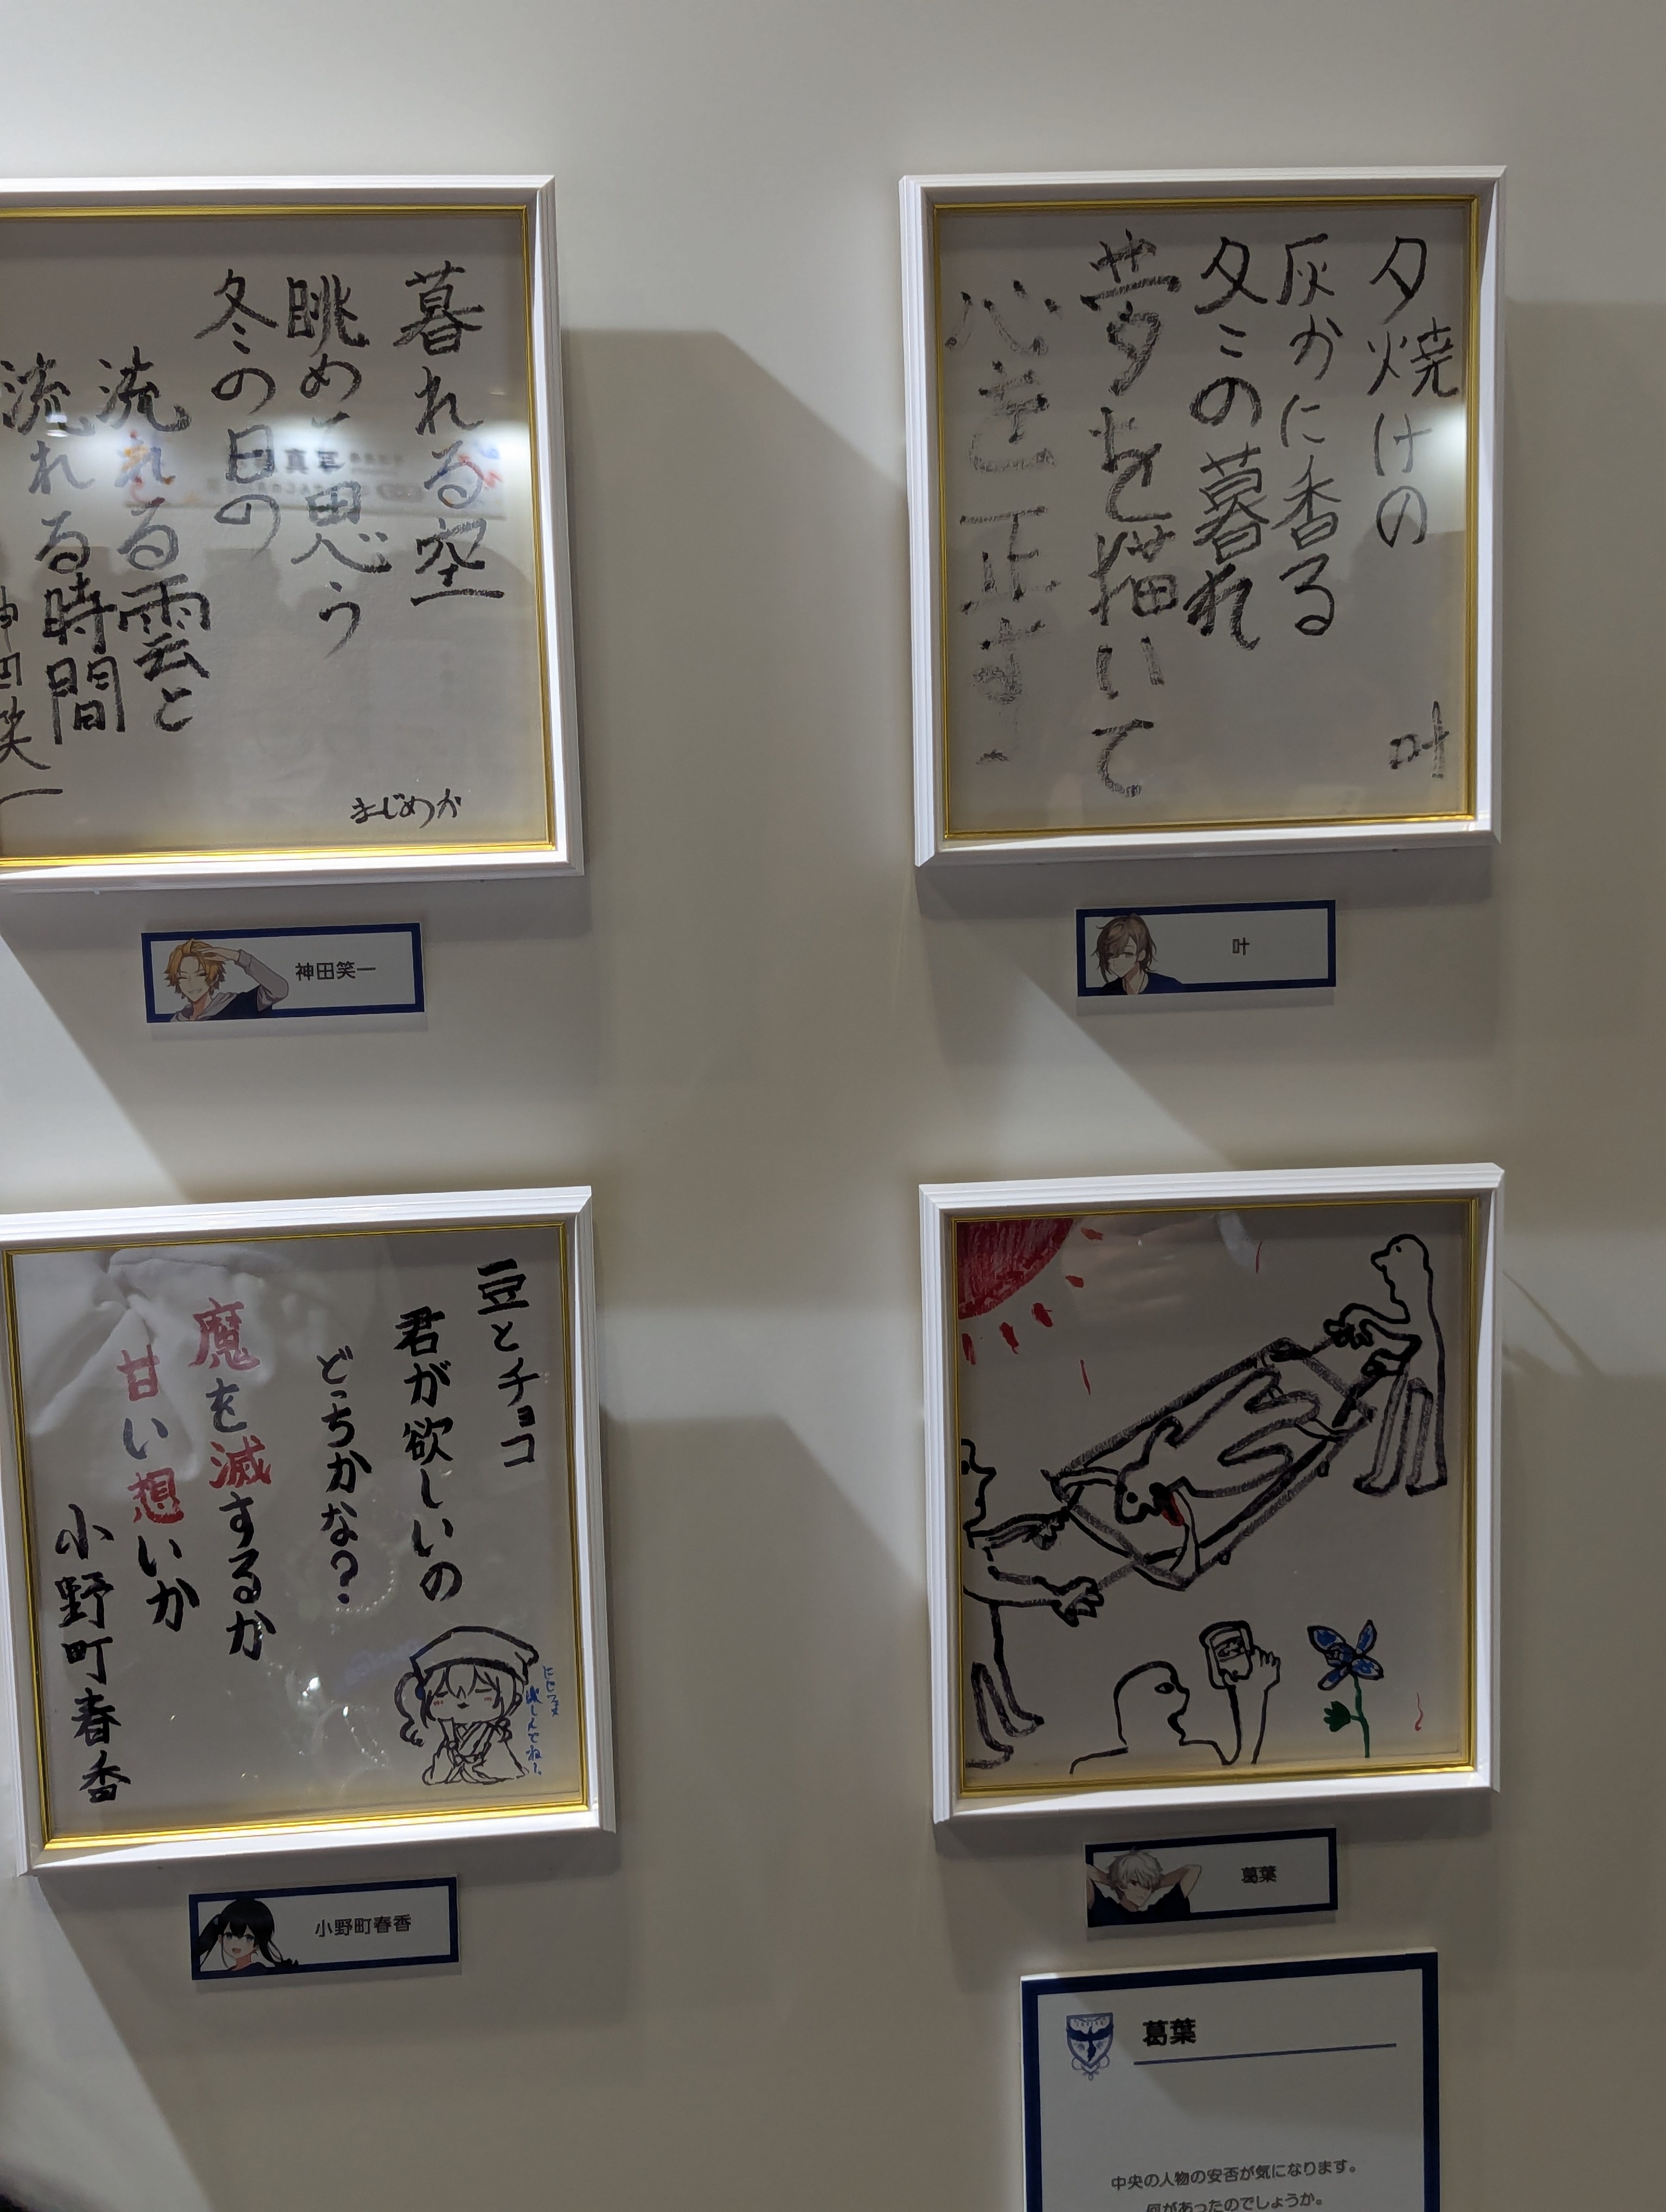 暮れる空
眺めて思う
冬の日の
流れる雲と
流れる時間
神田笑一
まじめか
神田笑一
夕焼けの
灰かに香る
冬の暮れ
夢を描いて
心を正す
叶
叶
豆とチョコ
君が欲しいの
どっちかな?
魔を滅するか
甘い想いか
小野町春香
にじフェス
楽しんでね!
小野町春香
葛葉
葛葉
中央の人物の安否が気になります。
何があったのでしょうか。